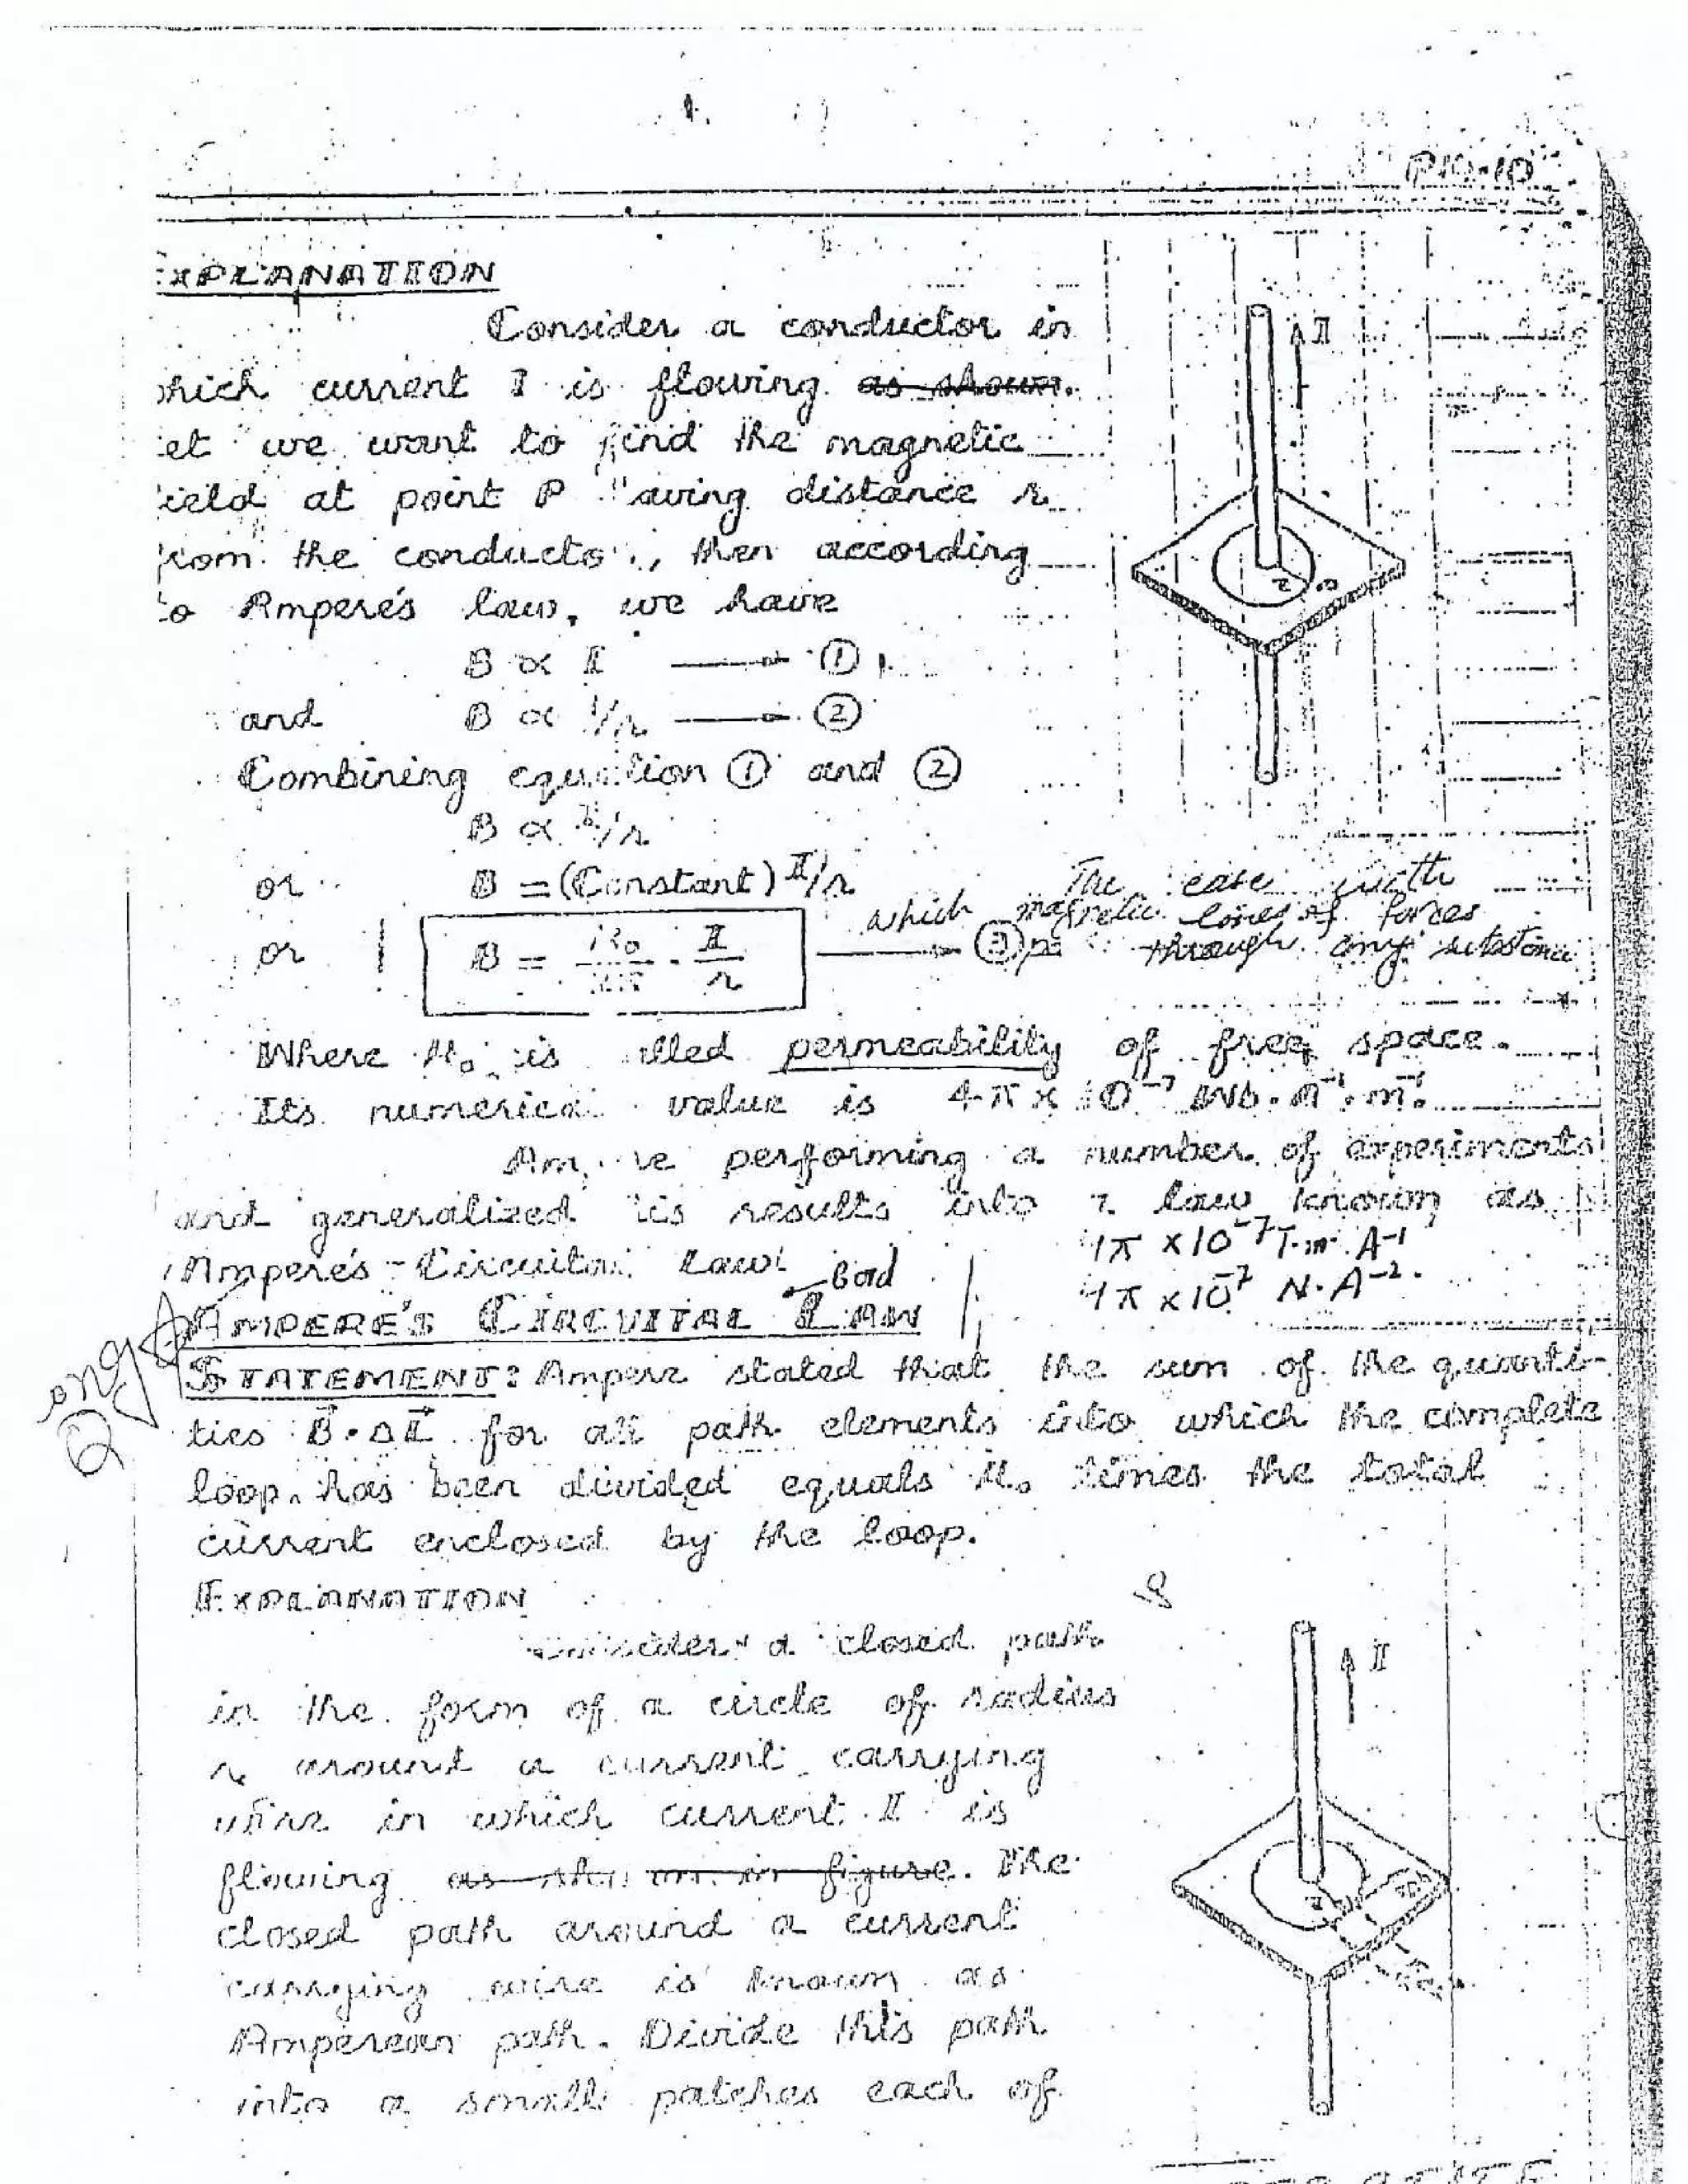 P10-10
EXPLANATION
Consider a conductor in
which current I is flowing as shown.
et we want to find the magnetic
ield at point P having distance r
from the conductor, then according
to Ampere's law, we have
B ∝ I → ①
and B ∝ 1/r → ②
Combining equation ① and ②
B ∝ I/r
or B = (Constant) I/r
The ease with
which magnetic lines of forces
or B = μ₀/2π · I/r → ③ through any substance
Where μ₀ is called permeability of free space.
Its numerical value is 4π × 10⁻⁷ Wb·A⁻¹·m⁻¹.
Ampere performing a number of experiments
and generalized his results into a law known as
Ampere's Circuital Law
4π × 10⁻⁷ T·m·A⁻¹
4π × 10⁻⁷ N·A⁻²
AMPERE'S CIRCUITAL LAW
STATEMENT: Ampere stated that the sum of the quanti-
ties B⃗·ΔL⃗ for all path elements into which the complete
loop has been divided equals μ₀ times the total
current enclosed by the loop.
EXPLANATION
Consider a closed path
in the form of a circle of radius
r around a current carrying
wire in which current I is
flowing as shown in figure. The
closed path around a current
carrying wire is known as
Amperean path. Divide this path
into a small patches each of
I
r
P
I
r